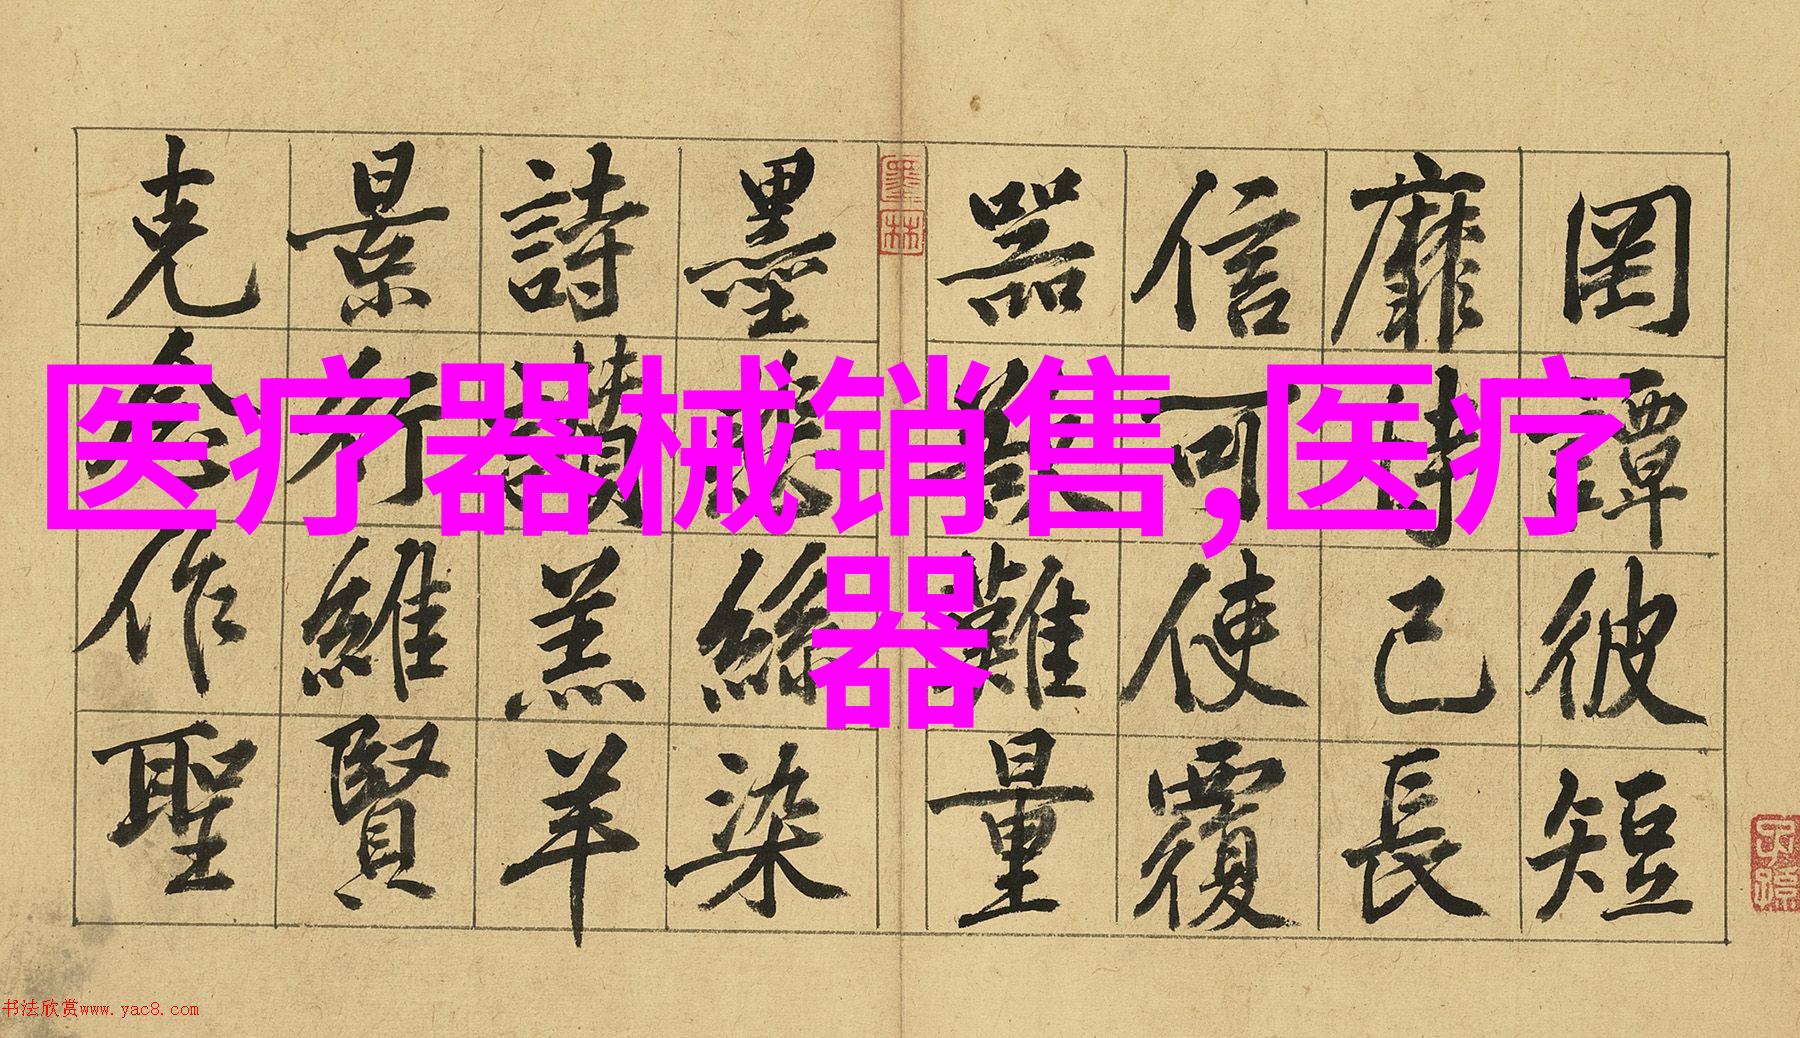 医疗器械销售,医疗
器
罔譚彼短
靡恃己長
信可使覆
器欲難量
墨悲絲染
詩讃羔羊
景行維賢
克念作聖
墨林
子孫
书法欣赏www.yac8.com